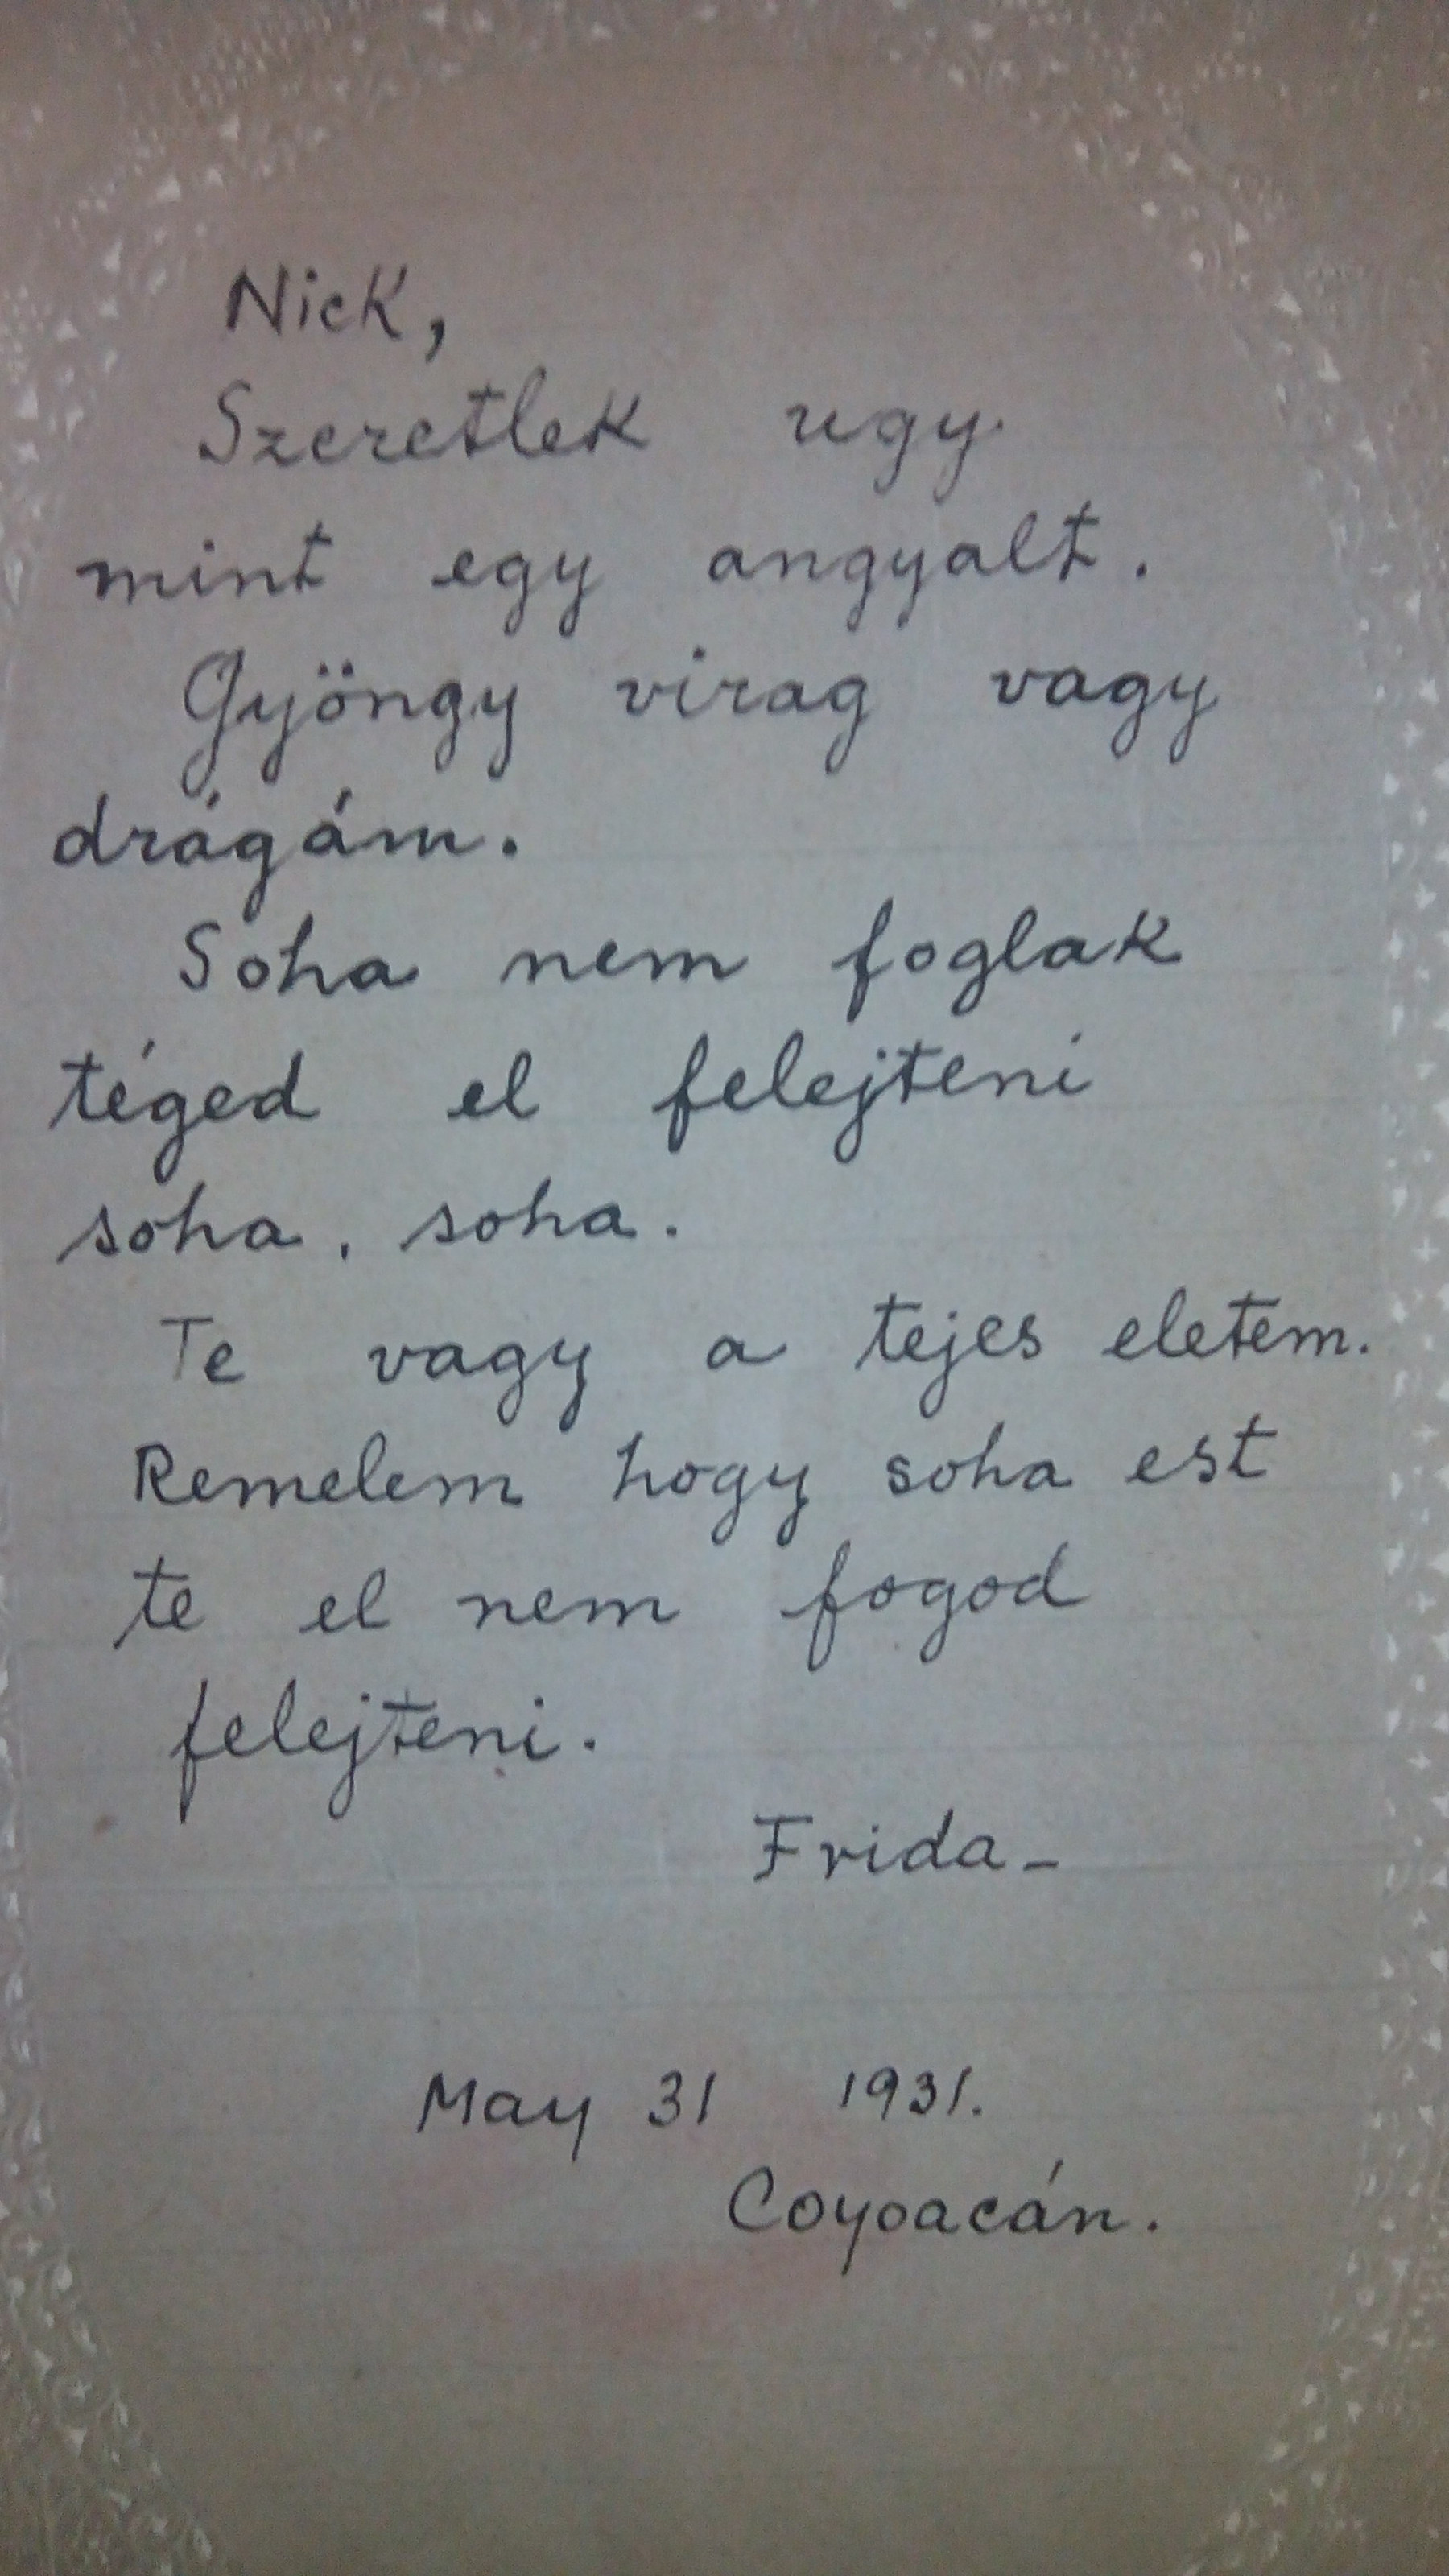 Nick,
Szeretlek ugy
mint egy angyalt.
Gyöngy virag vagy
drágám.
Soha nem foglak
téged el felejteni
soha, soha.
Te vagy a tejes eletem.
Remelem hogy soha est
te el nem fogod
felejteni.
Frida-
May 31 1931.
Coyoacán.